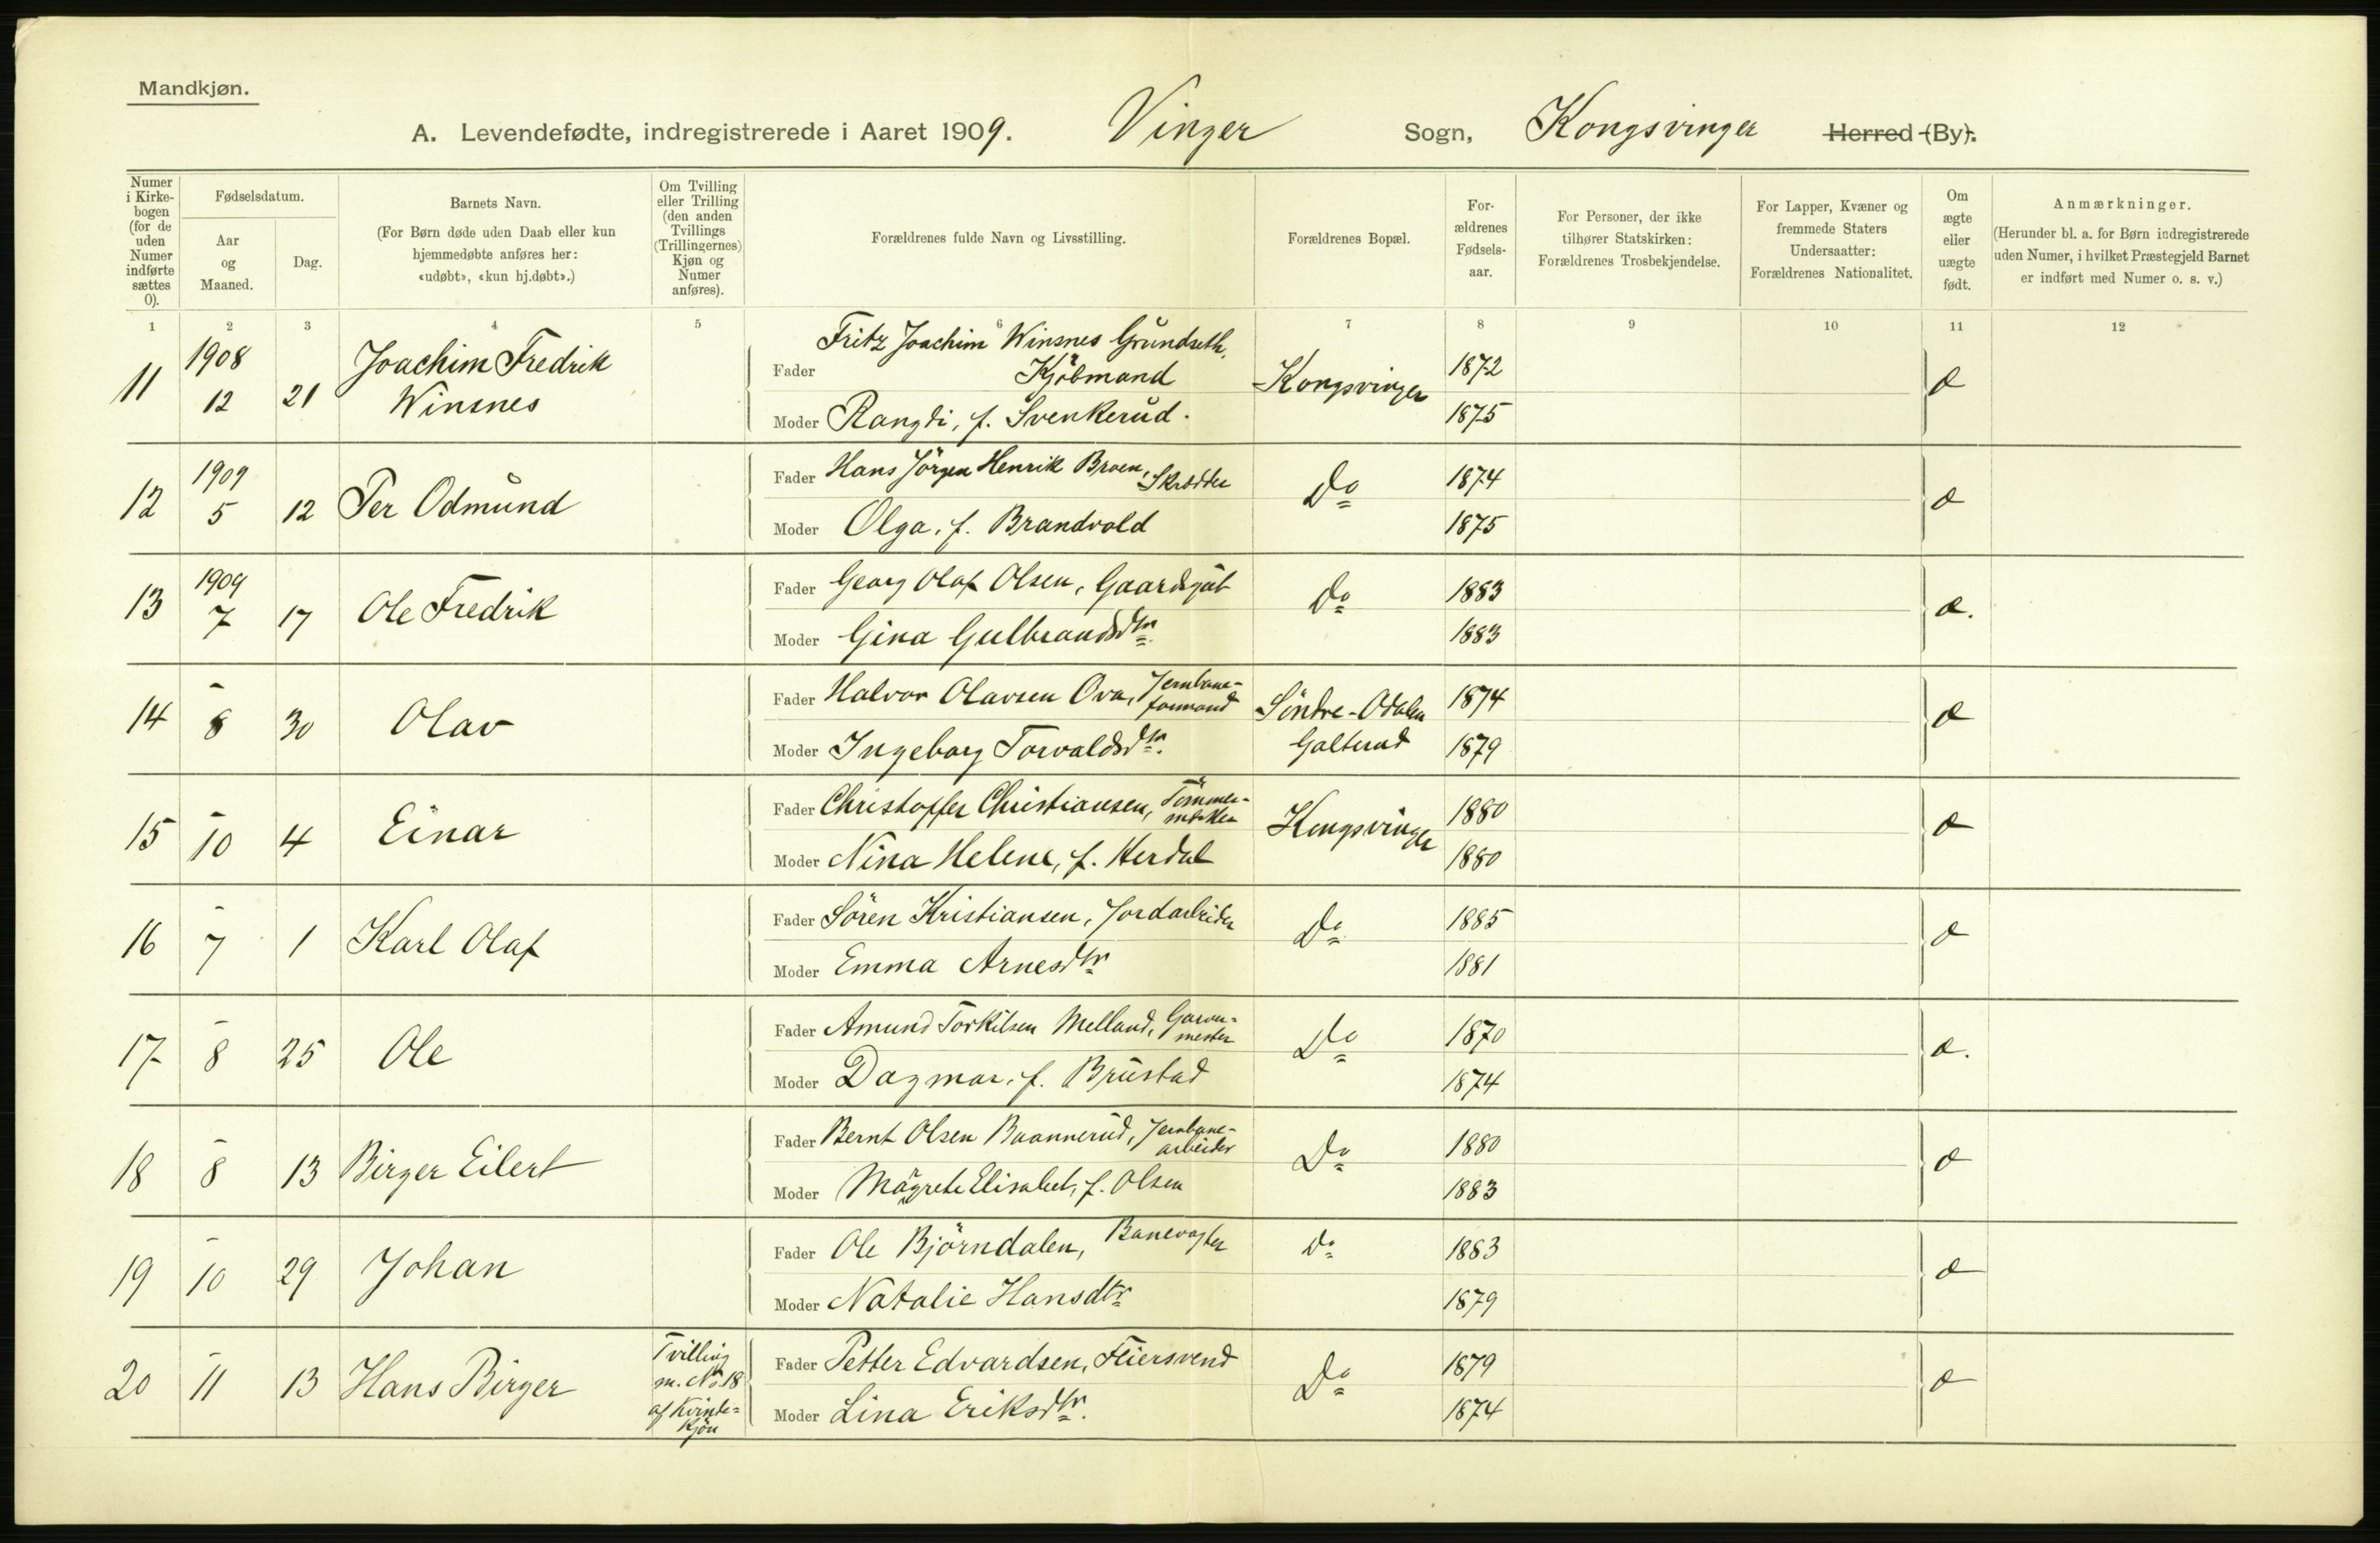 Mandkjøn.
A. Levendefødte, indregistrerede i Aaret 1909. Vinger Sogn, Kongsvinger Herred (By).
Numer i Kirkebogen (for de uden Numer indførte sættes 0).
Fødselsdatum.
Aar og Maaned.
Dag.
Barnets Navn.
(For Børn døde uden Daab eller kun hjemmedøbte anføres her: «udøbt», «kun hj.døbt».)
Om Tvilling eller Trilling (den anden Tvillings (Trillingernes) Kjøn og Numer anføres).
Forældrenes fulde Navn og Livsstilling.
Forældrenes Bopæl.
Forældrenes Fødselsaar.
For Personer, der ikke tilhører Statskirken: Forældrenes Trosbekjendelse.
For Lapper, Kvæner og fremmede Staters Undersaatter: Forældrenes Nationalitet.
Om ægte eller uægte født.
Anmærkninger.
(Herunder bl. a. for Børn indregistrerede uden Numer, i hvilket Præstegjeld Barnet er indført med Numer o. s. v.)
1 2 3 4 5 6 7 8 9 10 11 12
11 1908 12 21 Joachim Fredrik Winsnes
Fader Fritz Joachim Winsnes Grundseth, Kjöbmand Kongsvinger 1872 æ
Moder Rangdi, f. Svenkerud. 1875
12 1909 5 12 Per Odmund
Fader Hans Jörgen Henrik Broen, Skrædder Do 1874 æ
Moder Olga, f. Brandvold 1875
13 1909 7 17 Ole Fredrik
Fader Georg Olaf Olsen, Gaardsgut Do 1883 æ.
Moder Gina Gulbrandsdtr. 1883
14 - 8 30 Olav
Fader Halvor Olavsen Ova, Jernbaneformand Söndre-Odalen 1874 æ
Moder Ingeborg Torvaldsdtr. Galterud 1879
15 - 10 4 Einar
Fader Christoffer Christiansen, Tömmermærker Kongsvinger 1880 æ
Moder Nina Helene, f. Herdal 1880
16 - 7 1 Karl Olaf
Fader Sören Kristiansen, Jordarbeider Do 1885 æ
Moder Emma Arnesdtr 1881
17 - 8 25 Ole
Fader Amund Torkilsen Melland, Garvermester Do 1870 æ.
Moder Dagmar, f. Brustad 1874
18 - 8 13 Birger Eilert
Fader Bernt Olsen Baannerud, Jernbanearbeider Do 1880 æ
Moder Magrete Elisabet, f. Olsen 1883
19 - 10 29 Johan
Fader Ole Björndalen, Banevogter Do 1883 æ
Moder Natalie Hansdtr 1879
20 - 11 13 Hans Birger Tvilling m. No. 18 af Kvindekjön
Fader Petter Edvardsen, Feiersvend Do 1879 æ
Moder Lina Eriksdtr. 1874